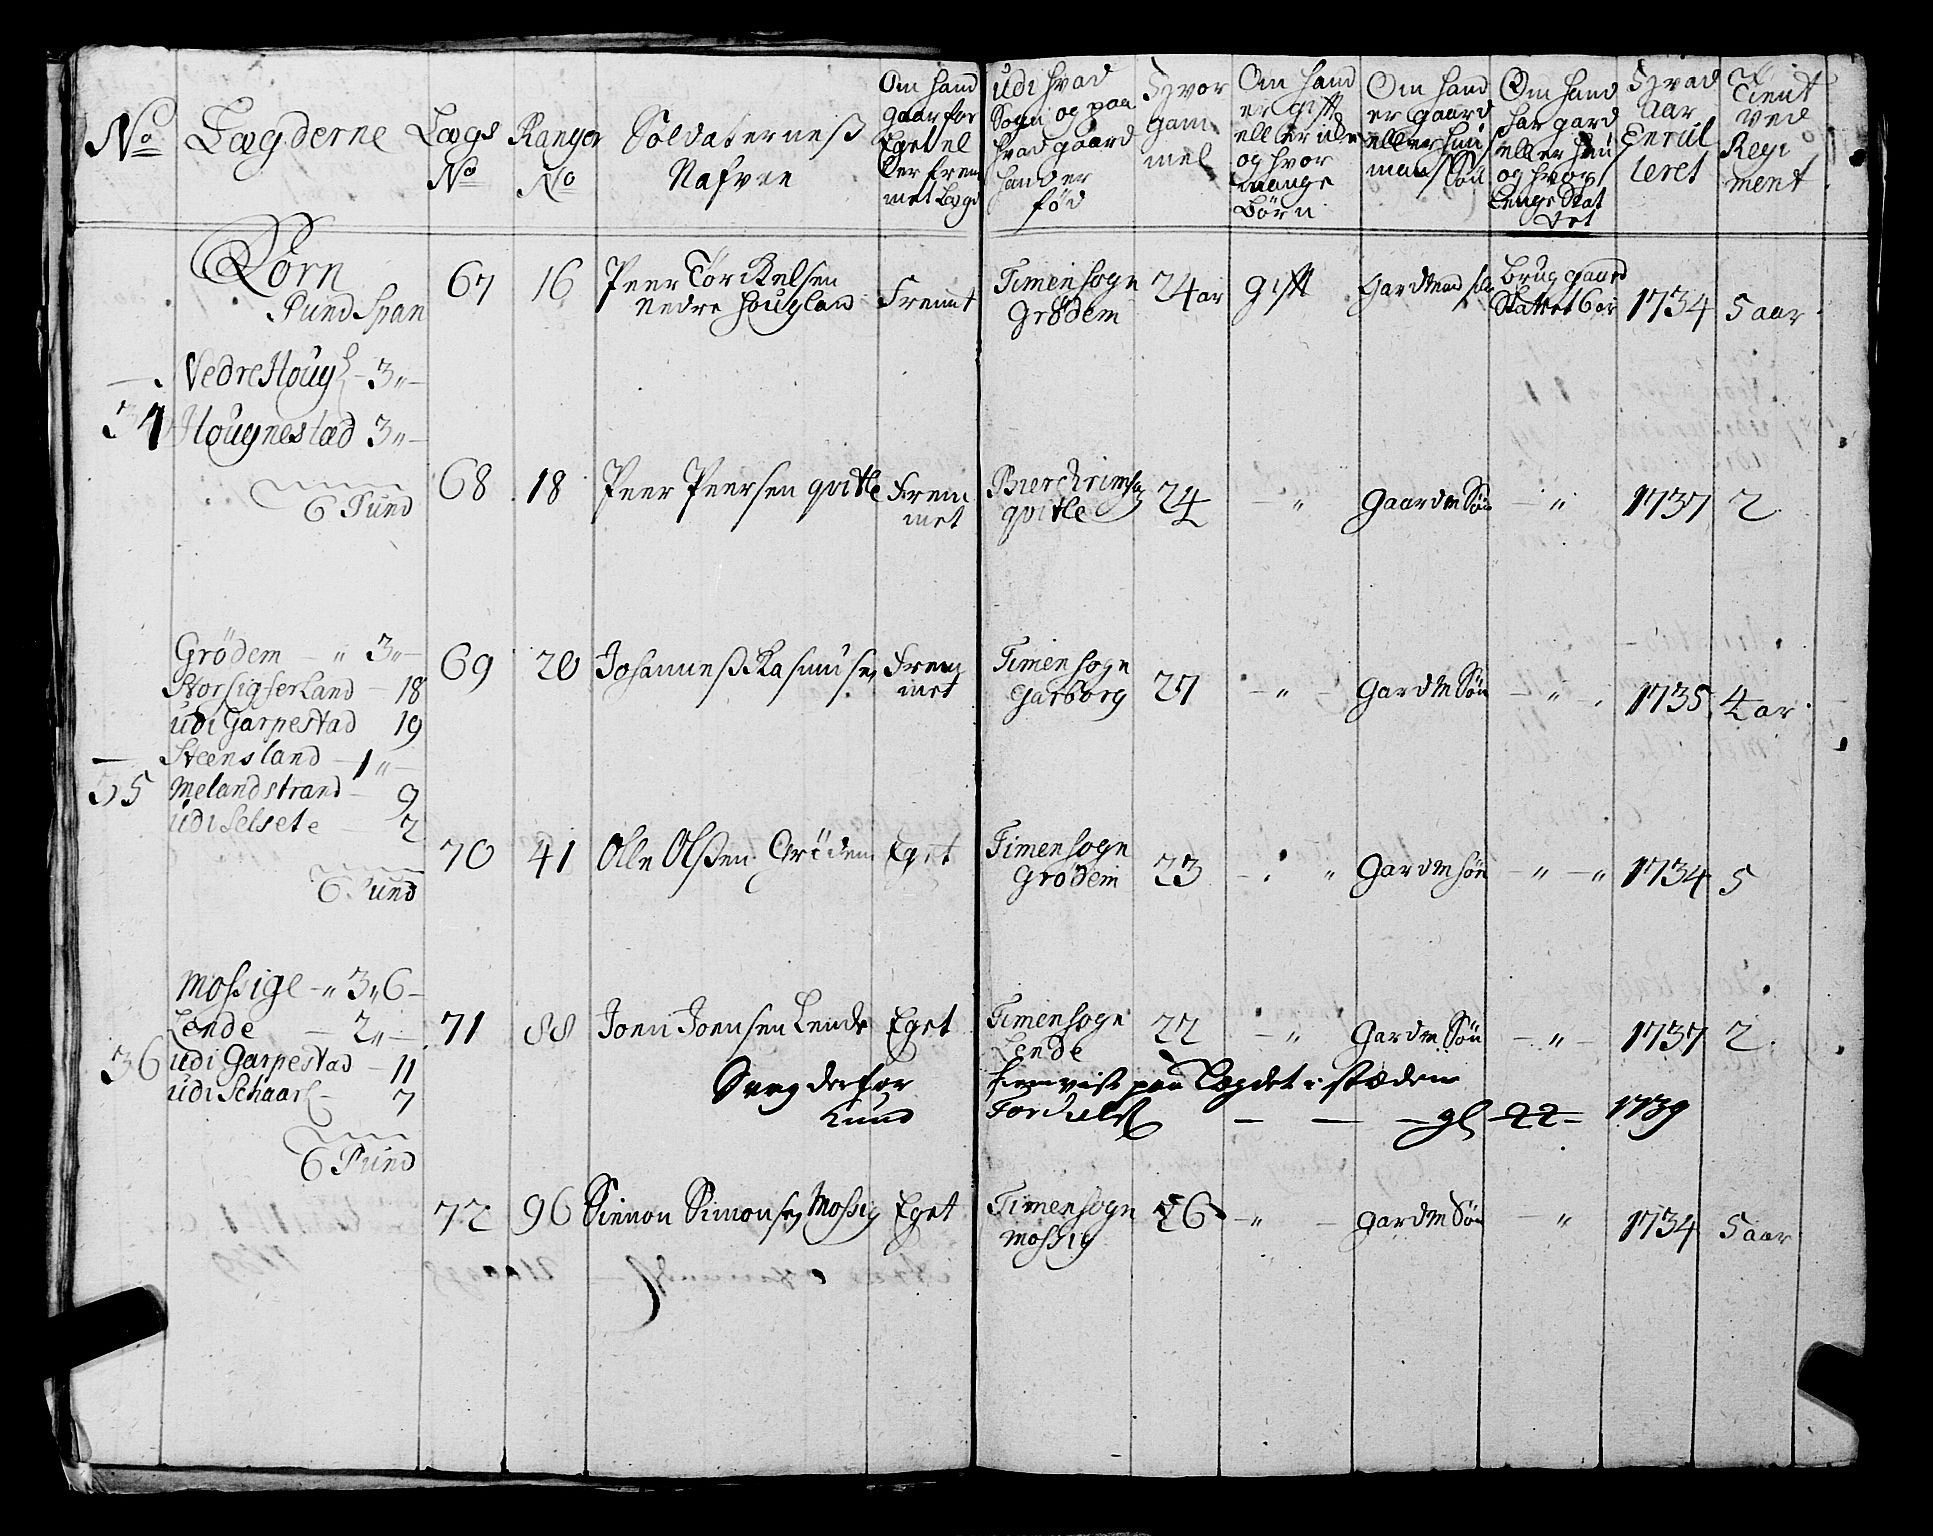 No
Lægderne
Lægs
No
Ranger
No
Soldaterneß
Nafvne
Om hand
gaar for
Eget el
ler frem
met Lægd
udi hvad
Sogn og paa
hvad gaard
hand er
fød
Hvor
gam
mel
Om hand
er gift
eller ide
og hvor
mange
Börn
Om hand
er gaard
eller huus
mandß
Sön
Om hand
har gard
eller huus
og hvor
Lenge Stat
det
Hvad
Aar
Enrul
leret
Tient
ved
Regi
ment
Korn
Pund Span
67 16 Peer Törkelsen
Nedre Hougland Fremt
Timen sogn
Grödem
24 ar gift
brug gaard
Stattet 6 ar
1734 5 aar
Nedre Hougl 3"
34 Hougnestad 3"
6 Pund
68 18 Peer Peersen qvitle Frem
met
qvitle
24 - " gaardm Sön - " 1737 2
Grödem " 3"
Storsigserland - 18
udi Garpestad 19
Steensland - 1"
35 Melandstrand - 9
udi Selsete 2
6 Pund
69 20 Johanneß Rasmusen Frem
met
Timen sogn
Garborg
27 - " - Gardm Sön - " 1735 4 ar
70 41 Olle Olßen Grödem Eget
Timen sogn
Grödem
23 - " Gardm Sön - " - " 1734 5
Mossige - " 3"6
Lende - 2"
36 udi Garpestad - 11
udi Schaarl - 7
6 Pund
71 88 Joen Joensen Lende Eget
Timen sogn
Lende
22 - " Gardm Sön - " - 1737 2
Svag derfor
hiemvist paa Lægdet i stæden
Knud
Torkelß - - - gl 22 - 1739
72 96 Simon Simonsen Mossig Eget
Timen sogn
Mossig
26 - " - gardm Sön - " 1734 5 aar